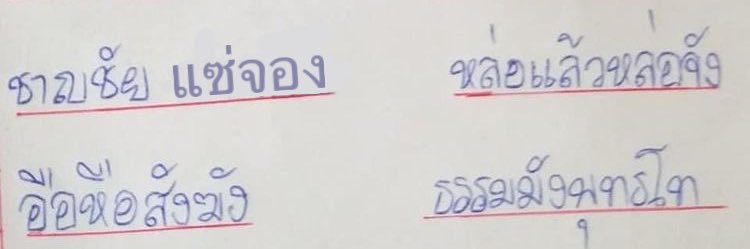 ชาญชัย แซ่จอง หล่อแล้วหล่อจัง
อือหือสังฆัง ธรรมมังพุทธโท